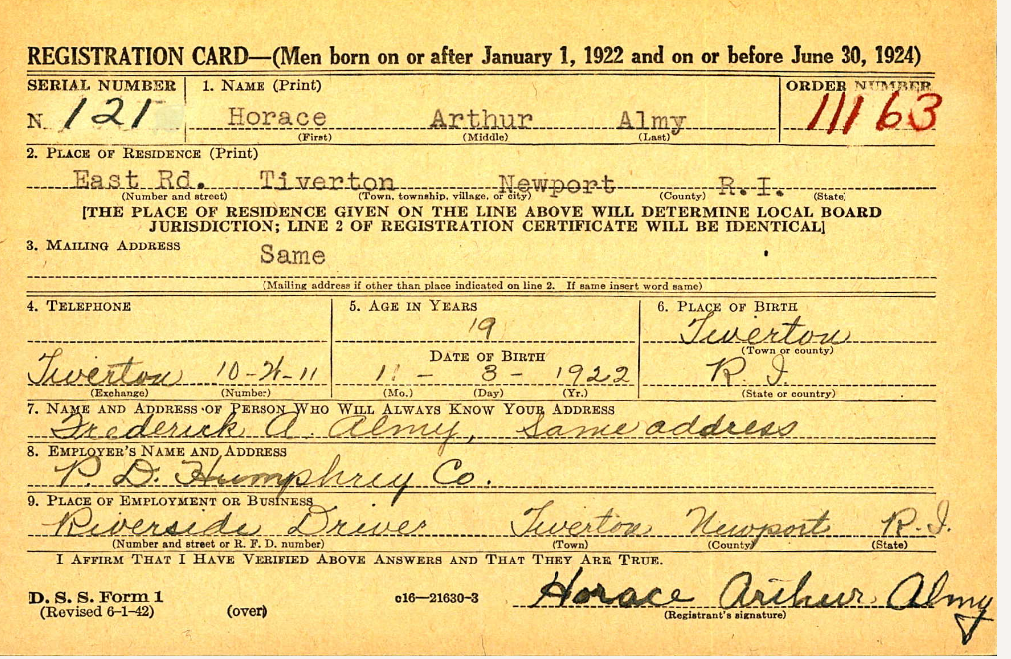 REGISTRATION CARD—(Men born on or after January 1, 1922 and on or before June 30, 1924)
SERIAL NUMBER 1. NAME (Print) ORDER NUMBER
N 121 Horace Arthur Almy 11163
(First) (Middle) (Last)
2. PLACE OF RESIDENCE (Print)
East Rd. Tiverton Newport R.I.
(Number and street) (Town, township, village, or city) (County) (State)
[THE PLACE OF RESIDENCE GIVEN ON THE LINE ABOVE WILL DETERMINE LOCAL BOARD
JURISDICTION; LINE 2 OF REGISTRATION CERTIFICATE WILL BE IDENTICAL]
3. MAILING ADDRESS
Same
(Mailing address if other than place indicated on line 2. If same insert word same)
4. TELEPHONE 5. AGE IN YEARS 6. PLACE OF BIRTH
19 Tiverton
DATE OF BIRTH (Town or county)
Tiverton 11 - 3 - 1922 R. I.
(Exchange) (Number) (Mo.) (Day) (Yr.) (State or country)
7. NAME AND ADDRESS OF PERSON WHO WILL ALWAYS KNOW YOUR ADDRESS
Frederick A. Almy, Same address
8. EMPLOYER'S NAME AND ADDRESS
P. D. Humphrey Co.
9. PLACE OF EMPLOYMENT OR BUSINESS
Riverside Drive Tiverton Newport R.I.
(Number and street or R. F. D. number) (Town) (County) (State)
I AFFIRM THAT I HAVE VERIFIED ABOVE ANSWERS AND THAT THEY ARE TRUE.
D. S. S. Form 1
(Revised 6-1-42) (over) c16—21630-3 Horace Arthur Almy
(Registrant's signature)